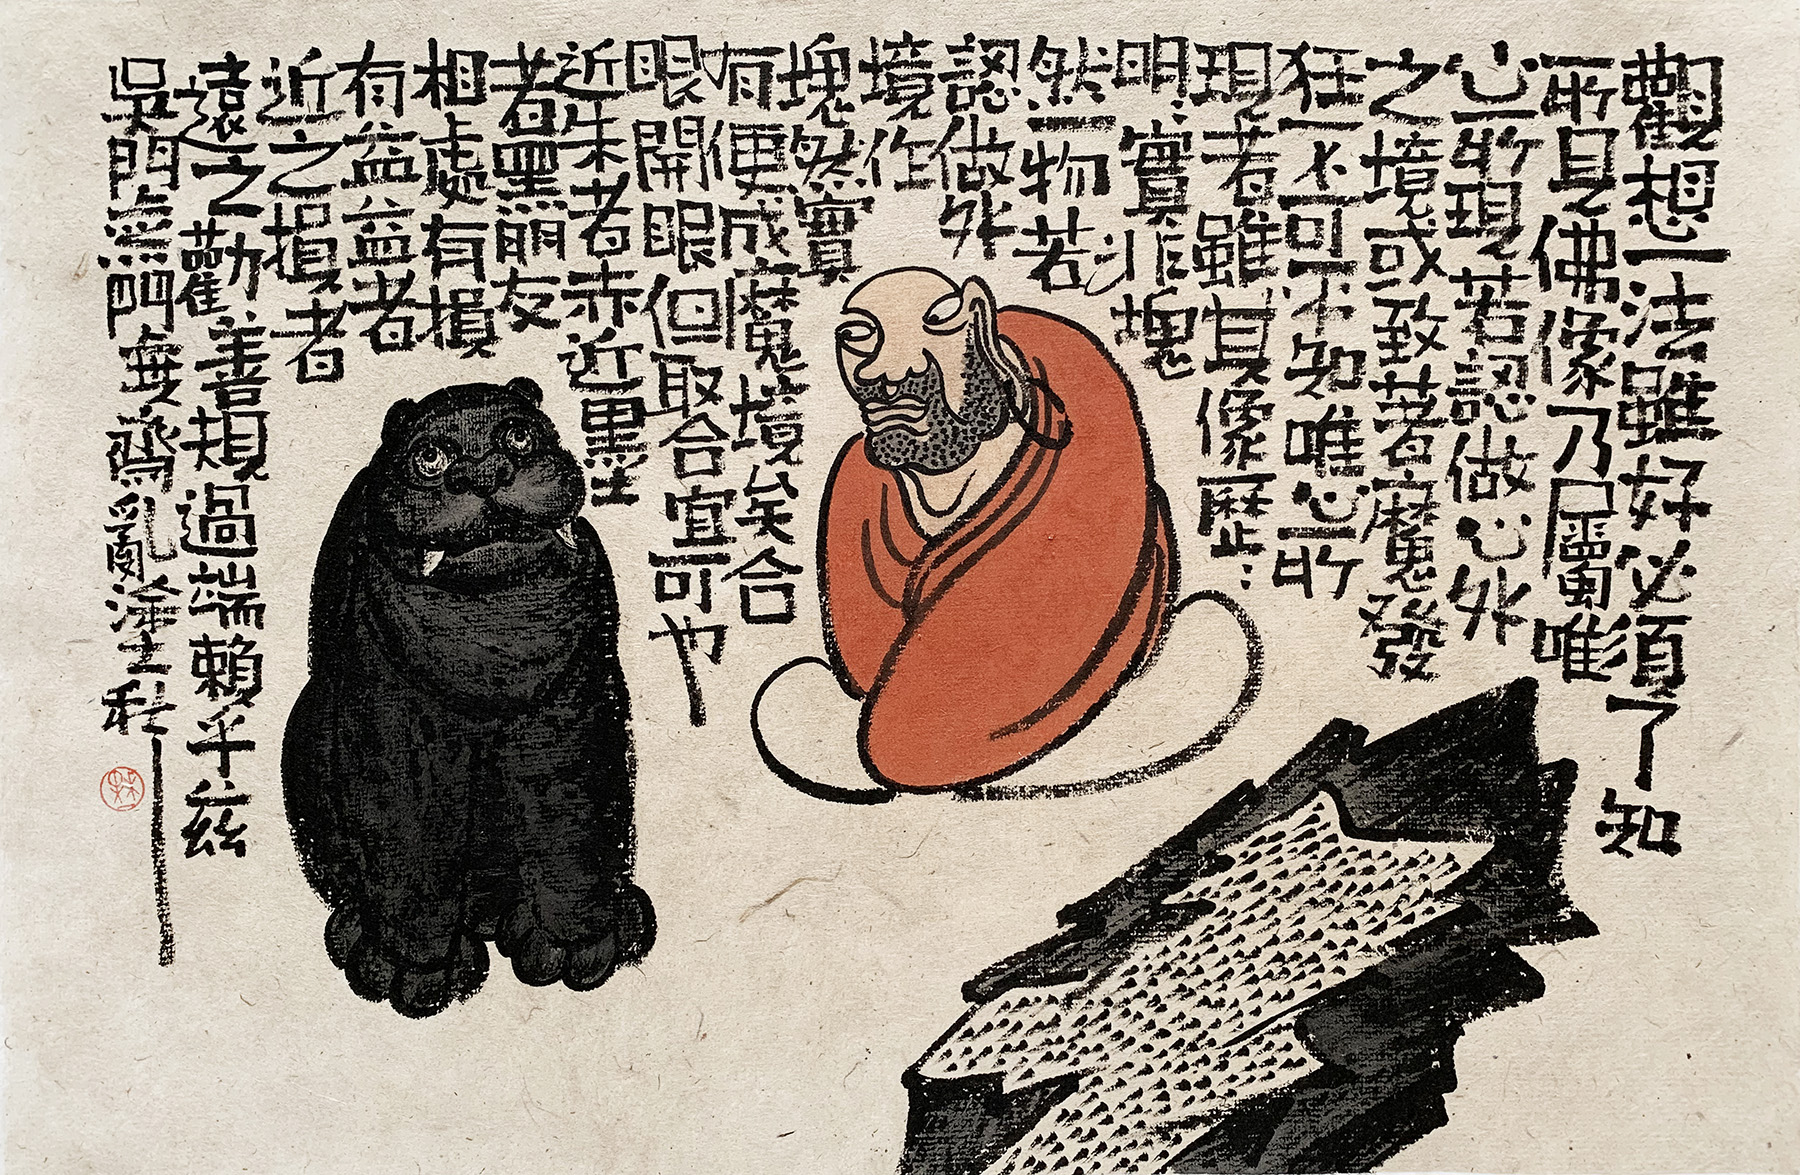 觀想一法雖好必須了知
所見佛像乃屬唯
心所現若認做心外
之境或致著魔發
狂不可不知唯心所
現者雖其像歷〻
明〻實非塊
然一物若
認做外
境作
塊然實
有便成魔境矣合
眼開眼但取合宜可也
近朱者赤近墨
者黑朋友
相處有損
有益益者
近之損者
遠之勸善規過端賴乎茲
吳門無門無齋亂塗之秋